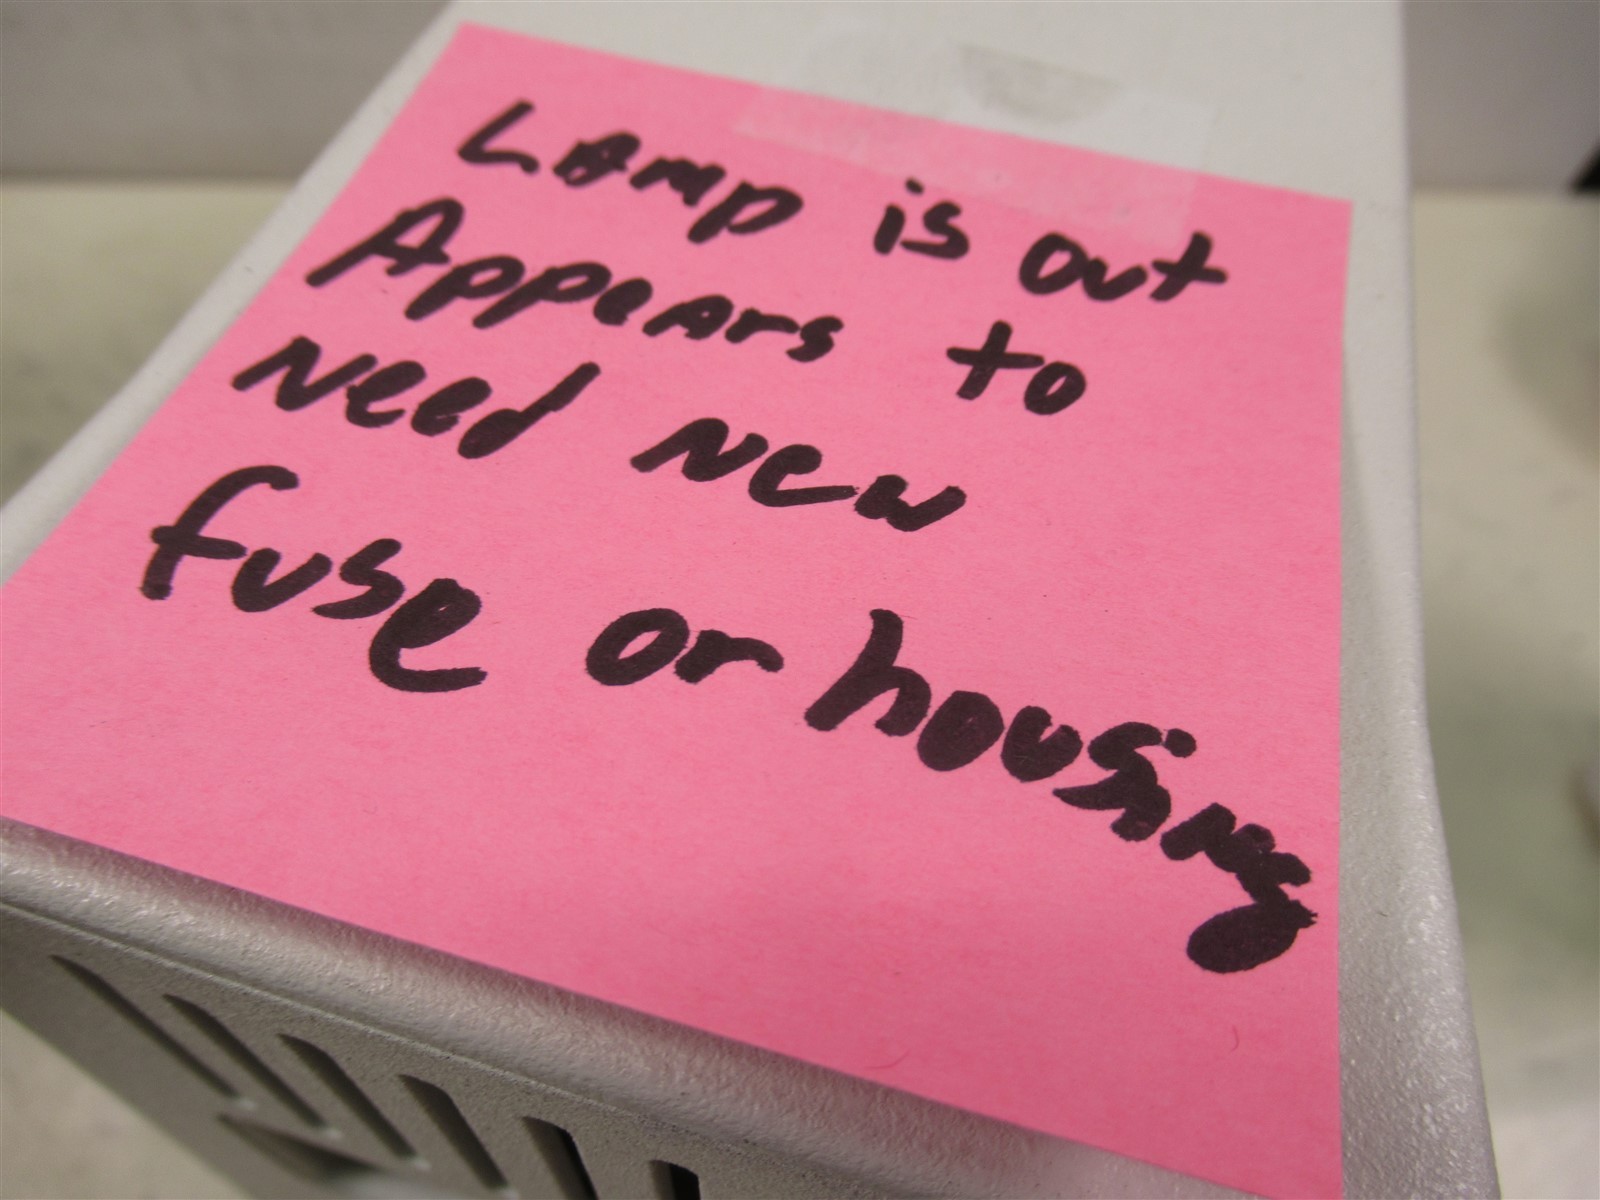 Lamp is out
Appears to
Need new
fuse or housing